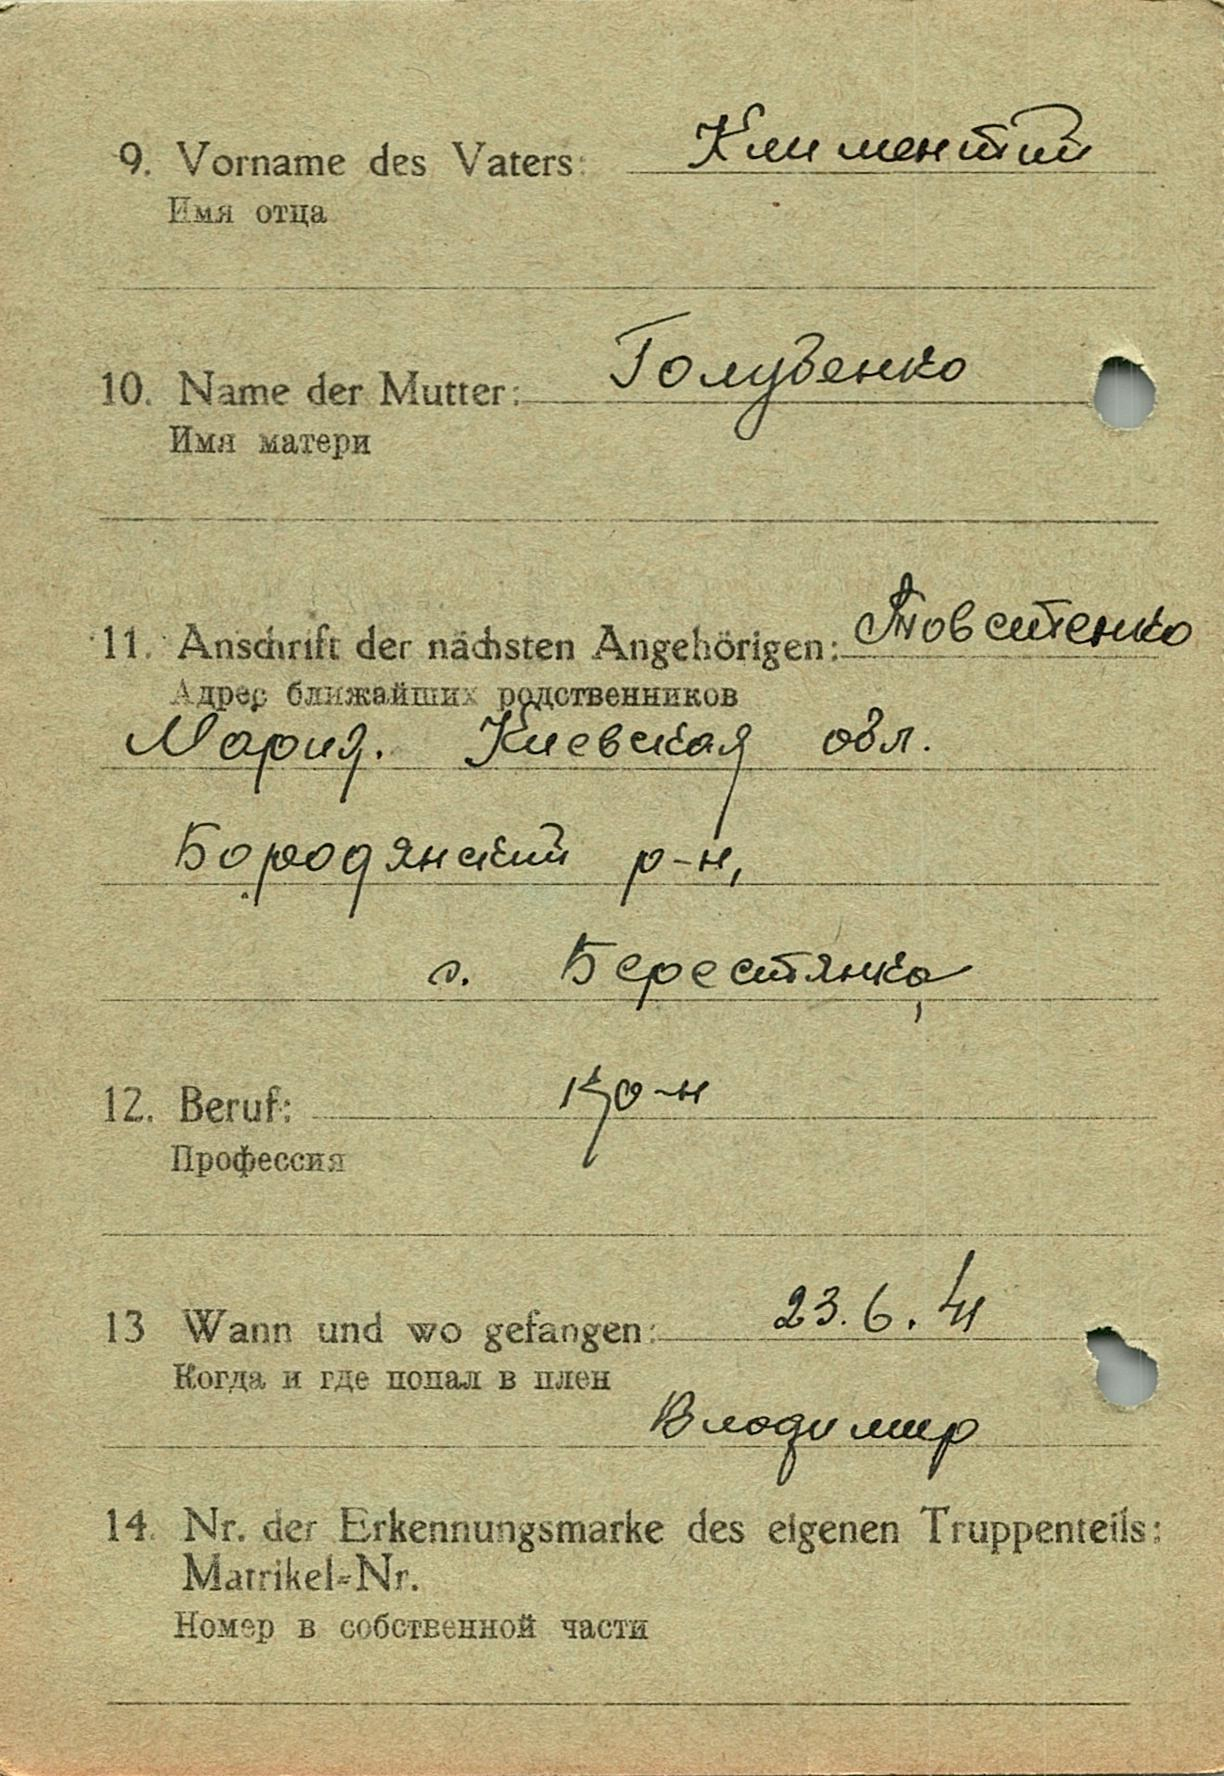 9. Vorname des Vaters: Климентий
Имя отца
10. Name der Mutter: Голубенко
Имя матери
11. Anschrift der nächsten Angehörigen: Товстенко
Адрес ближайших родственников
Мария. Киевская обл.
Бородянский р-н,
с. Берестянка,
12. Beruf:
Профессия
13 Wann und wo gefangen: 23.6.41
Когда и где попал в плен
Владимир
14. Nr. der Erkennungsmarke des eigenen Truppenteils:
Matrikel-Nr.
Номер в собственной части